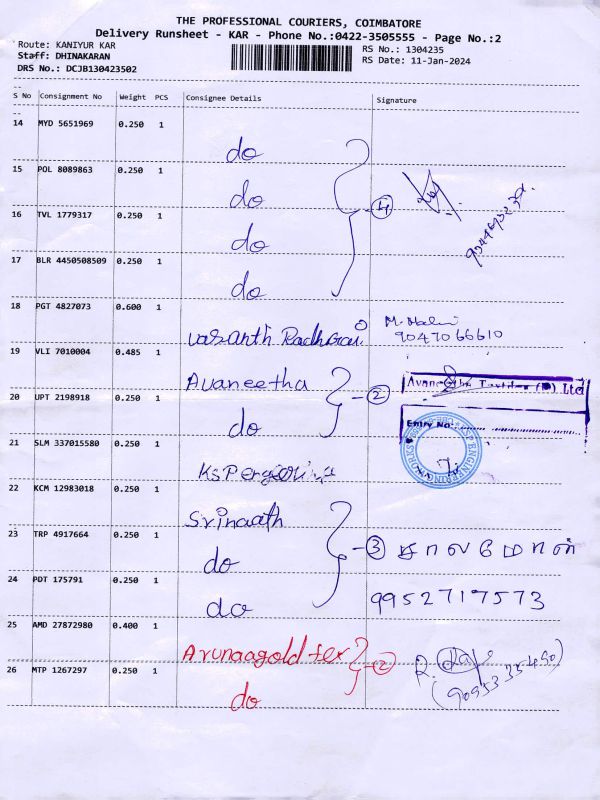 THE PROFESSIONAL COURIERS, COIMBATORE
Delivery Runsheet - KAR - Phone No.:0422-3505555 - Page No.:2
Route: KANIYUR KAR
RS No.: 1304235
Staff: DHINAKARAN
RS Date: 11-Jan-2024
DRS No.: DCJB130423502
S No Consignment No Weight PCS Consignee Details Signature
14 MYD 5651969 0.250 1 do
15 POL 8089863 0.250 1 do
16 TVL 1779317 0.250 1 do
4
17 BLR 4450508509 0.250 1 do
18 PGT 4827073 0.600 1 vasanth
9047066610
19 VLI 7010004 0.485 1 Avaneetha
2
20 UPT 2198918 0.250 1 do
(P) Ltd
Entry No:
21 SLM 337015580 0.250 1 KSP
KSP ENGINEERING WORKS
22 KCM 12983018 0.250 1 Srinaath
23 TRP 4917664 0.250 1 do
3
24 PDT 175791 0.250 1 do 9952717573
25 AMD 27872980 0.400 1 Arunaagold tex
2
R.
26 MTP 1267297 0.250 1 do
(90953 35490)